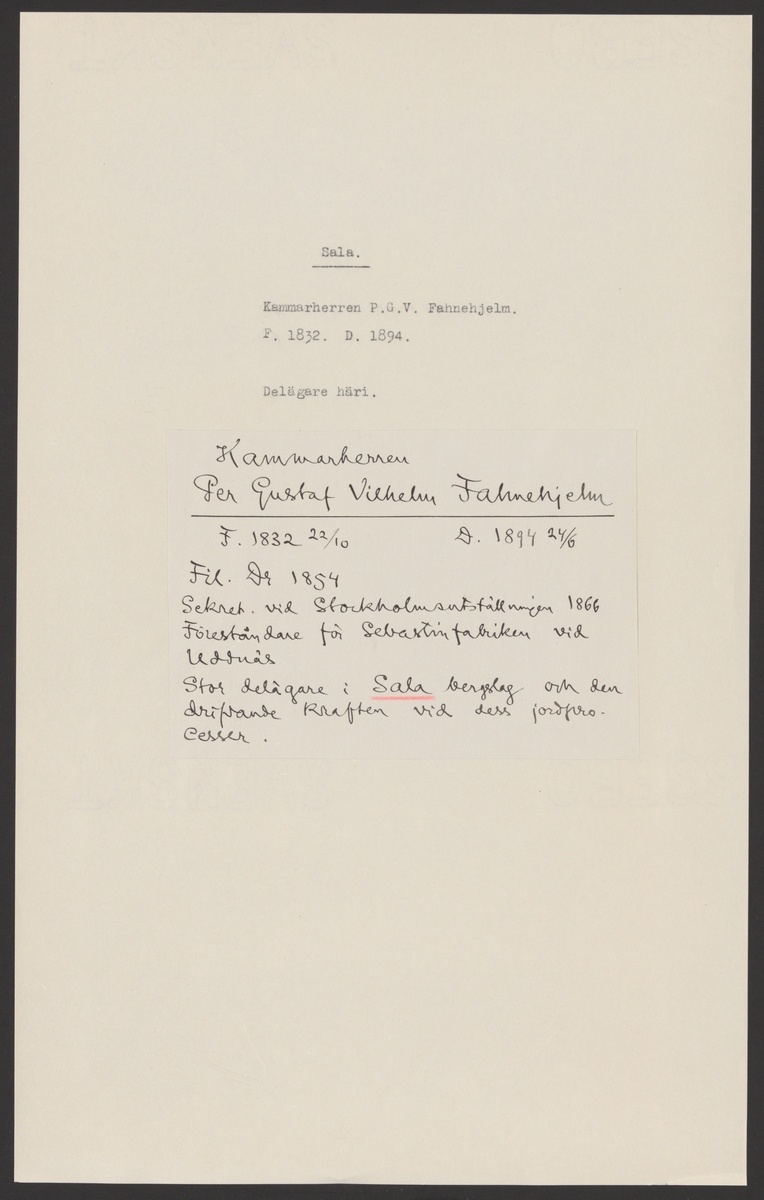 Sala.
Kammarherren P.G.V. Fahnehjelm.
F. 1832. D. 1894.
Delägare häri.
Kammarherren
Per Gustaf Vilhelm Fahnehjelm
F. 1832 22/10 D. 1894 24/6
Fil. Dr 1854
Sekret. vid Stockholmsutställningen 1866
Föreståndare för Sebastinfabriken vid
Uddnäs
Stor delägare i Sala bergslag och den
drifvande kraften vid dess jordpro-
cesser.